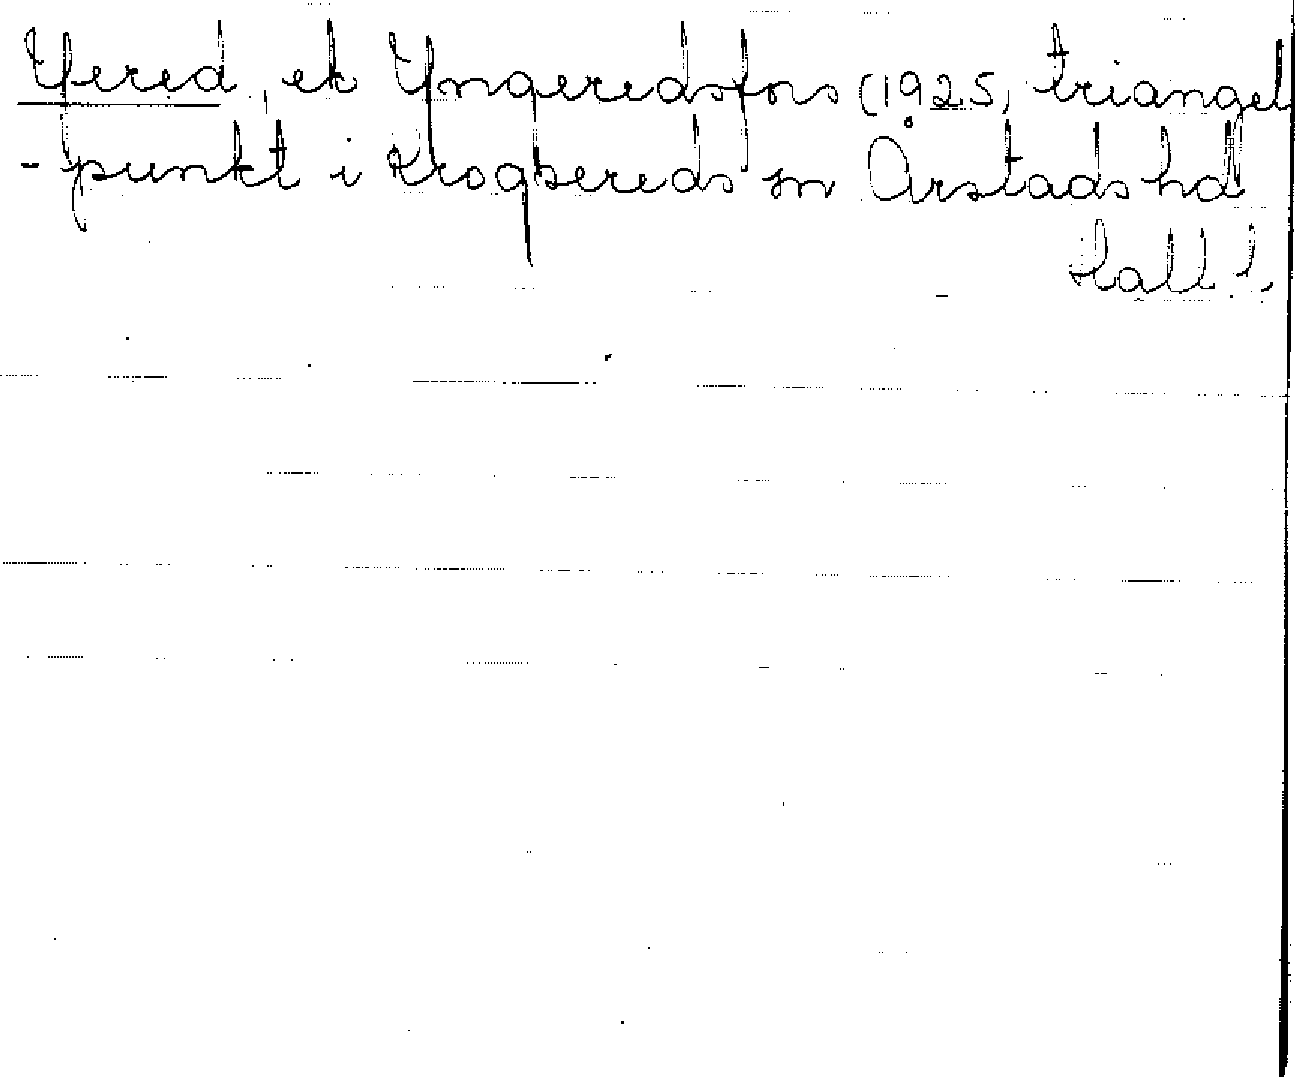 Yered, ek Yngeredsfors (1925, triangel
-punkt i Krogsereds sn Årstads hd
Hall!.